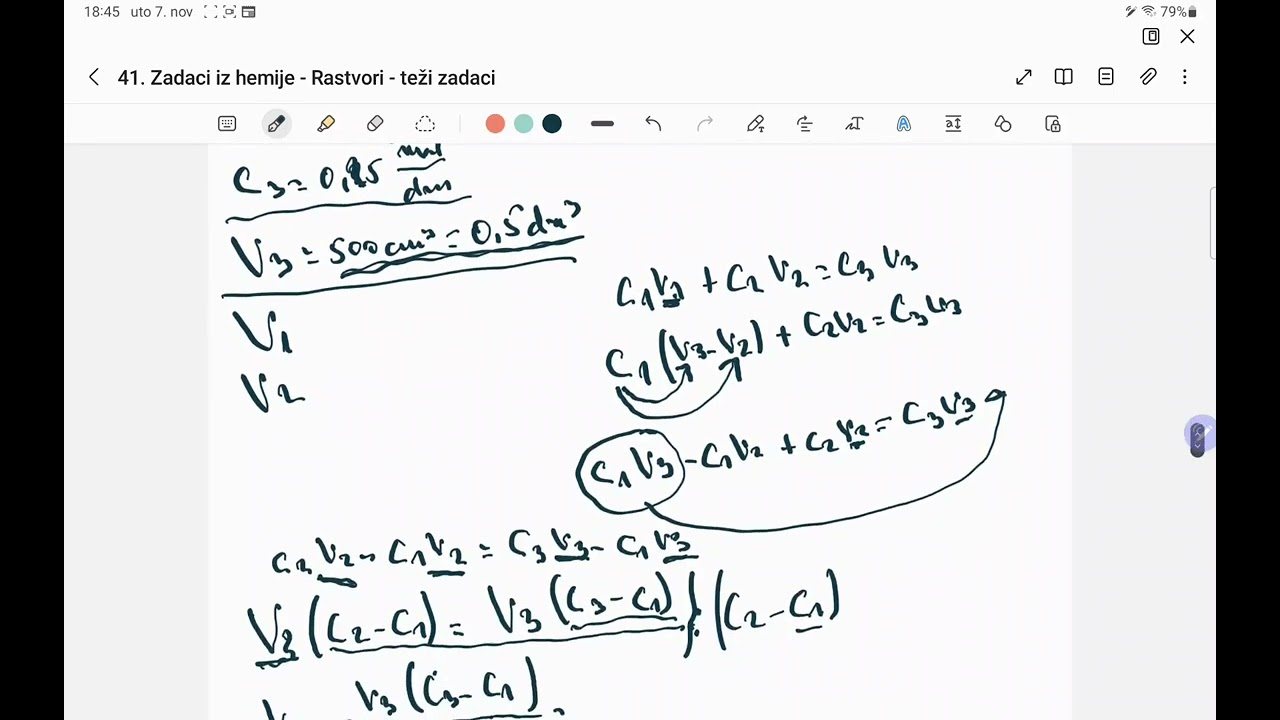 18:45 uto 7. nov 79%
41. Zadaci iz hemije - Rastvori - teži zadaci
C3 = 0,25 mol/dm
V3 = 500 cm³ = 0,5 dm³
V1
V2
C1V1 + C2V2 = C3V3
C1(V3-V2) + C2V2 = C3V3
C1V3 - C1V2 + C2V2 = C3V3
C2V2 - C1V2 = C3V3 - C1V3
V2(C2-C1) = V3(C3-C1) /:(C2-C1)
V3(C3-C1)